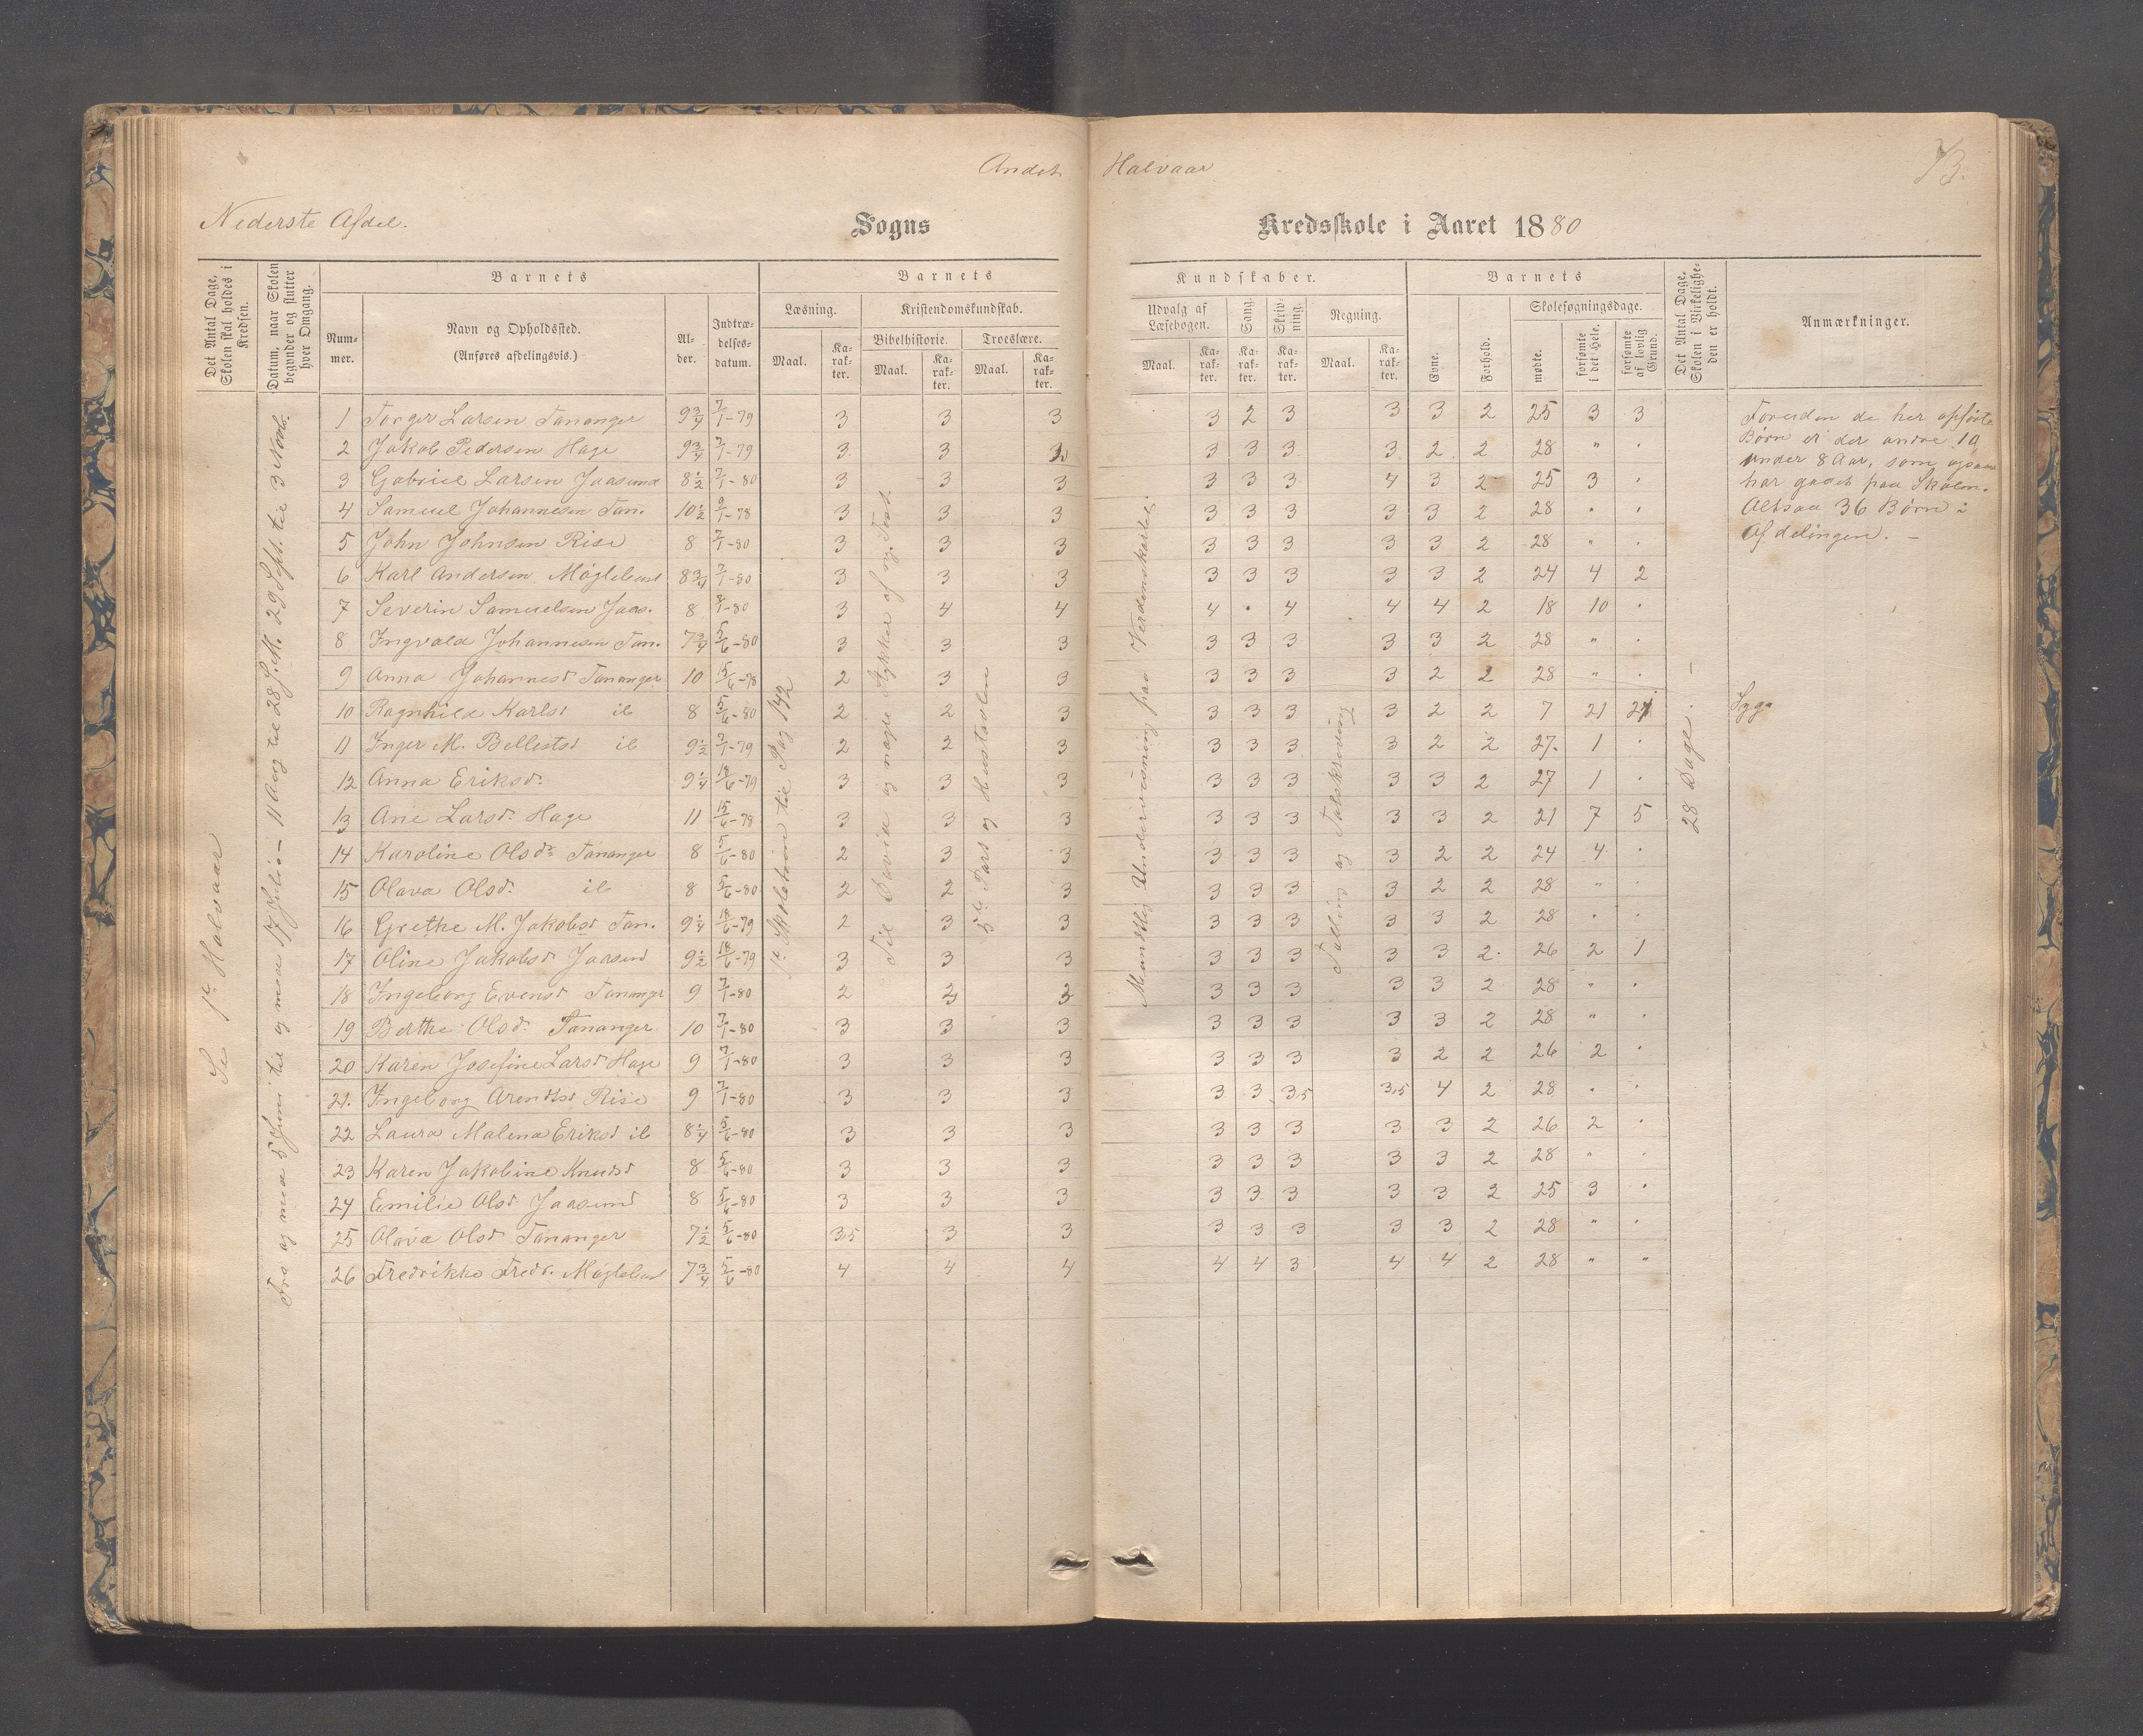 Andet Halvaar
73.
Nederste Afdel. Sogns Kredsskole i Aaret 1880
Det Antal Dage, Skolen skal holdes i Kredsen.
Datum, naar Skolen begynder og slutter hver Omgang.
Barnets
Barnets
Kundskaber.
Barnets
Det Antal Dage, Skolen i Virkeligheden er holdt.
Anmærkninger.
Nummer.
Navn og Opholdssted.
(Anføres afdelingsvis.)
Alder.
Indtrædelsesdatum.
Læsning.
Kristendomskundskab.
Udvalg af Læsebogen.
Sang.
Skrivning.
Regning.
Evne.
Forhold.
Skolesøgningsdage.
Bibelhistorie.
Troeslære.
Maal. Karakter. Maal. Karakter. Maal. Karakter. Maal. Karakter. Karakter. Karakter. Maal. Karakter.
mødte. forsømte i det Hele. forsømte af lovlig Grund.
Se 1ste Halvaar
Fra og med 5 Juni til og med 17 Julio – 11 Aug til 28 S.M. 29 Sept. til 3 Novb.
1ste Skoletrin til Pag 142
Til David og nogle Stykker af ny. Test.
5te Pars og Hustavlen
Mundtlig Undervisning paa Verdenskartet.
Tælling og Talskrivning
28 Dage. –
1 Torger Larsen Tananger 9 3/4 7/1-79 3 3 3 3 2 3 3 3 2 25 3 3
2 Jakob Pedersen Hage 9 3/4 7/1-79 3 3 3 3 3 3 3 2 2 28 " "
3 Gabriel Larsen Jaasund 8 1/2 7/1-80 3 3 3 3 3 3 4 3 2 25 3 "
4 Samuel Johannesen Tan. 10 1/2 9/1-78 3 3 3 3 3 3 3 3 2 28 " "
5 John Johnsen Rise 8 7/1-80 3 3 3 3 3 3 3 3 2 28 " "
6 Karl Andersen Møglebust 8 3/4 7/1-80 3 3 3 3 3 3 3 3 2 24 4 2
7 Severin Samuelsen Jaas. 8 7/1-80 3 4 4 4 " 4 4 4 2 18 10 "
8 Ingvald Johannesen Tan. 7 3/4 5/6-80 3 3 3 3 3 3 3 3 2 28 " "
9 Anna Johannesd Tananger 10 15/6-78 2 3 3 3 3 3 3 2 2 28 " "
10 Ragnhild Karlsd ib 8 5/6-80 2 2 3 3 3 3 3 2 2 7 21 21 Syg
11 Inger M. Bellestsd ib 9 1/2 7/1-79 2 2 3 3 3 3 3 2 2 27 1 "
12 Anna Eriksd. 9 1/4 18/6-79 3 3 3 3 3 3 3 3 2 27 1 "
13 Ane Larsd. Hage 11 15/6-78 3 3 3 3 3 3 3 3 2 21 7 5
14 Karoline Olsdr Tananger 8 5/6-80 2 3 3 3 3 3 3 2 2 24 4 "
15 Olava Olsd. ib 8 5/6-80 2 2 3 3 3 3 3 2 2 28 " "
16 Grethe M. Jakobsd Tan. 9 1/4 18/6-79 2 3 3 3 3 3 3 3 2 28 " "
17 Oline Jakobsd Jaasund 9 1/2 18/6-79 3 3 3 3 3 3 3 3 2 26 2 1
18 Ingeborg Evensd Tananger 9 7/1-80 2 2 3 3 3 3 3 3 2 28 " "
19 Berthe Olsd. Tananger 10 7/1-80 3 3 3 3 3 3 3 3 2 28 " "
20 Karen Josefine Larsd Hage 9 7/1-80 3 3 3 3 3 3 3 2 2 26 2 "
21. Ingeborg Arendtsd Rise 9 7/1-80 3 3 3 3 3 3,5 3,5 4 2 28 " "
22 Laura Malena Eriksd ib 8 1/4 5/6-80 3 3 3 3 3 3 3 3 2 26 2 "
23 Karen Jakobine Knudsd 8 5/6-80 3 3 3 3 3 3 3 3 2 28 " "
24 Emilie Olsd Jaasund 8 5/6-80 3 3 3 3 3 3 3 3 2 25 3 "
25 Olava Olsd Tananger 7 1/2 5/6-80 3,5 3 3 3 3 3 3 3 2 28 " "
26 Fredrikke Fredr. Møglebust 7 3/4 5/6-80 4 4 4 4 4 3 4 4 2 28 " "
Foruden de her opførte
Børn er der andre 10
under 8 Aar, som ogsaa
har gaaet paa Skolen.
Altsaa 36 Børn i
Afdelingen. –